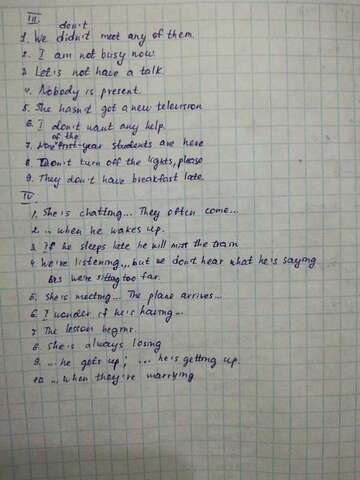 III.
don't
1. We didn't meet any of them.
2. I am not busy now
3 Let's not have a talk.
4. Nobody is present.
5. She hasn't got a new television
6. I don't want any help.
of the
7. None first-year students are here
8. Don't turn off the lights, please
9. They don't have breakfast late
IV.
1. She is chatting... They often come...
2. ... when he wakes up.
3. if he sleeps late he will miss the train
4. We're listening... but we don't hear what he is saying
we're sitting too far.
5. She is meeting... The plane arrives...
6. I wonder if he is having...
7. The lesson begins.
8. She is always losing
9. ... he gets up; ... he is getting up.
10. ... when they're marrying